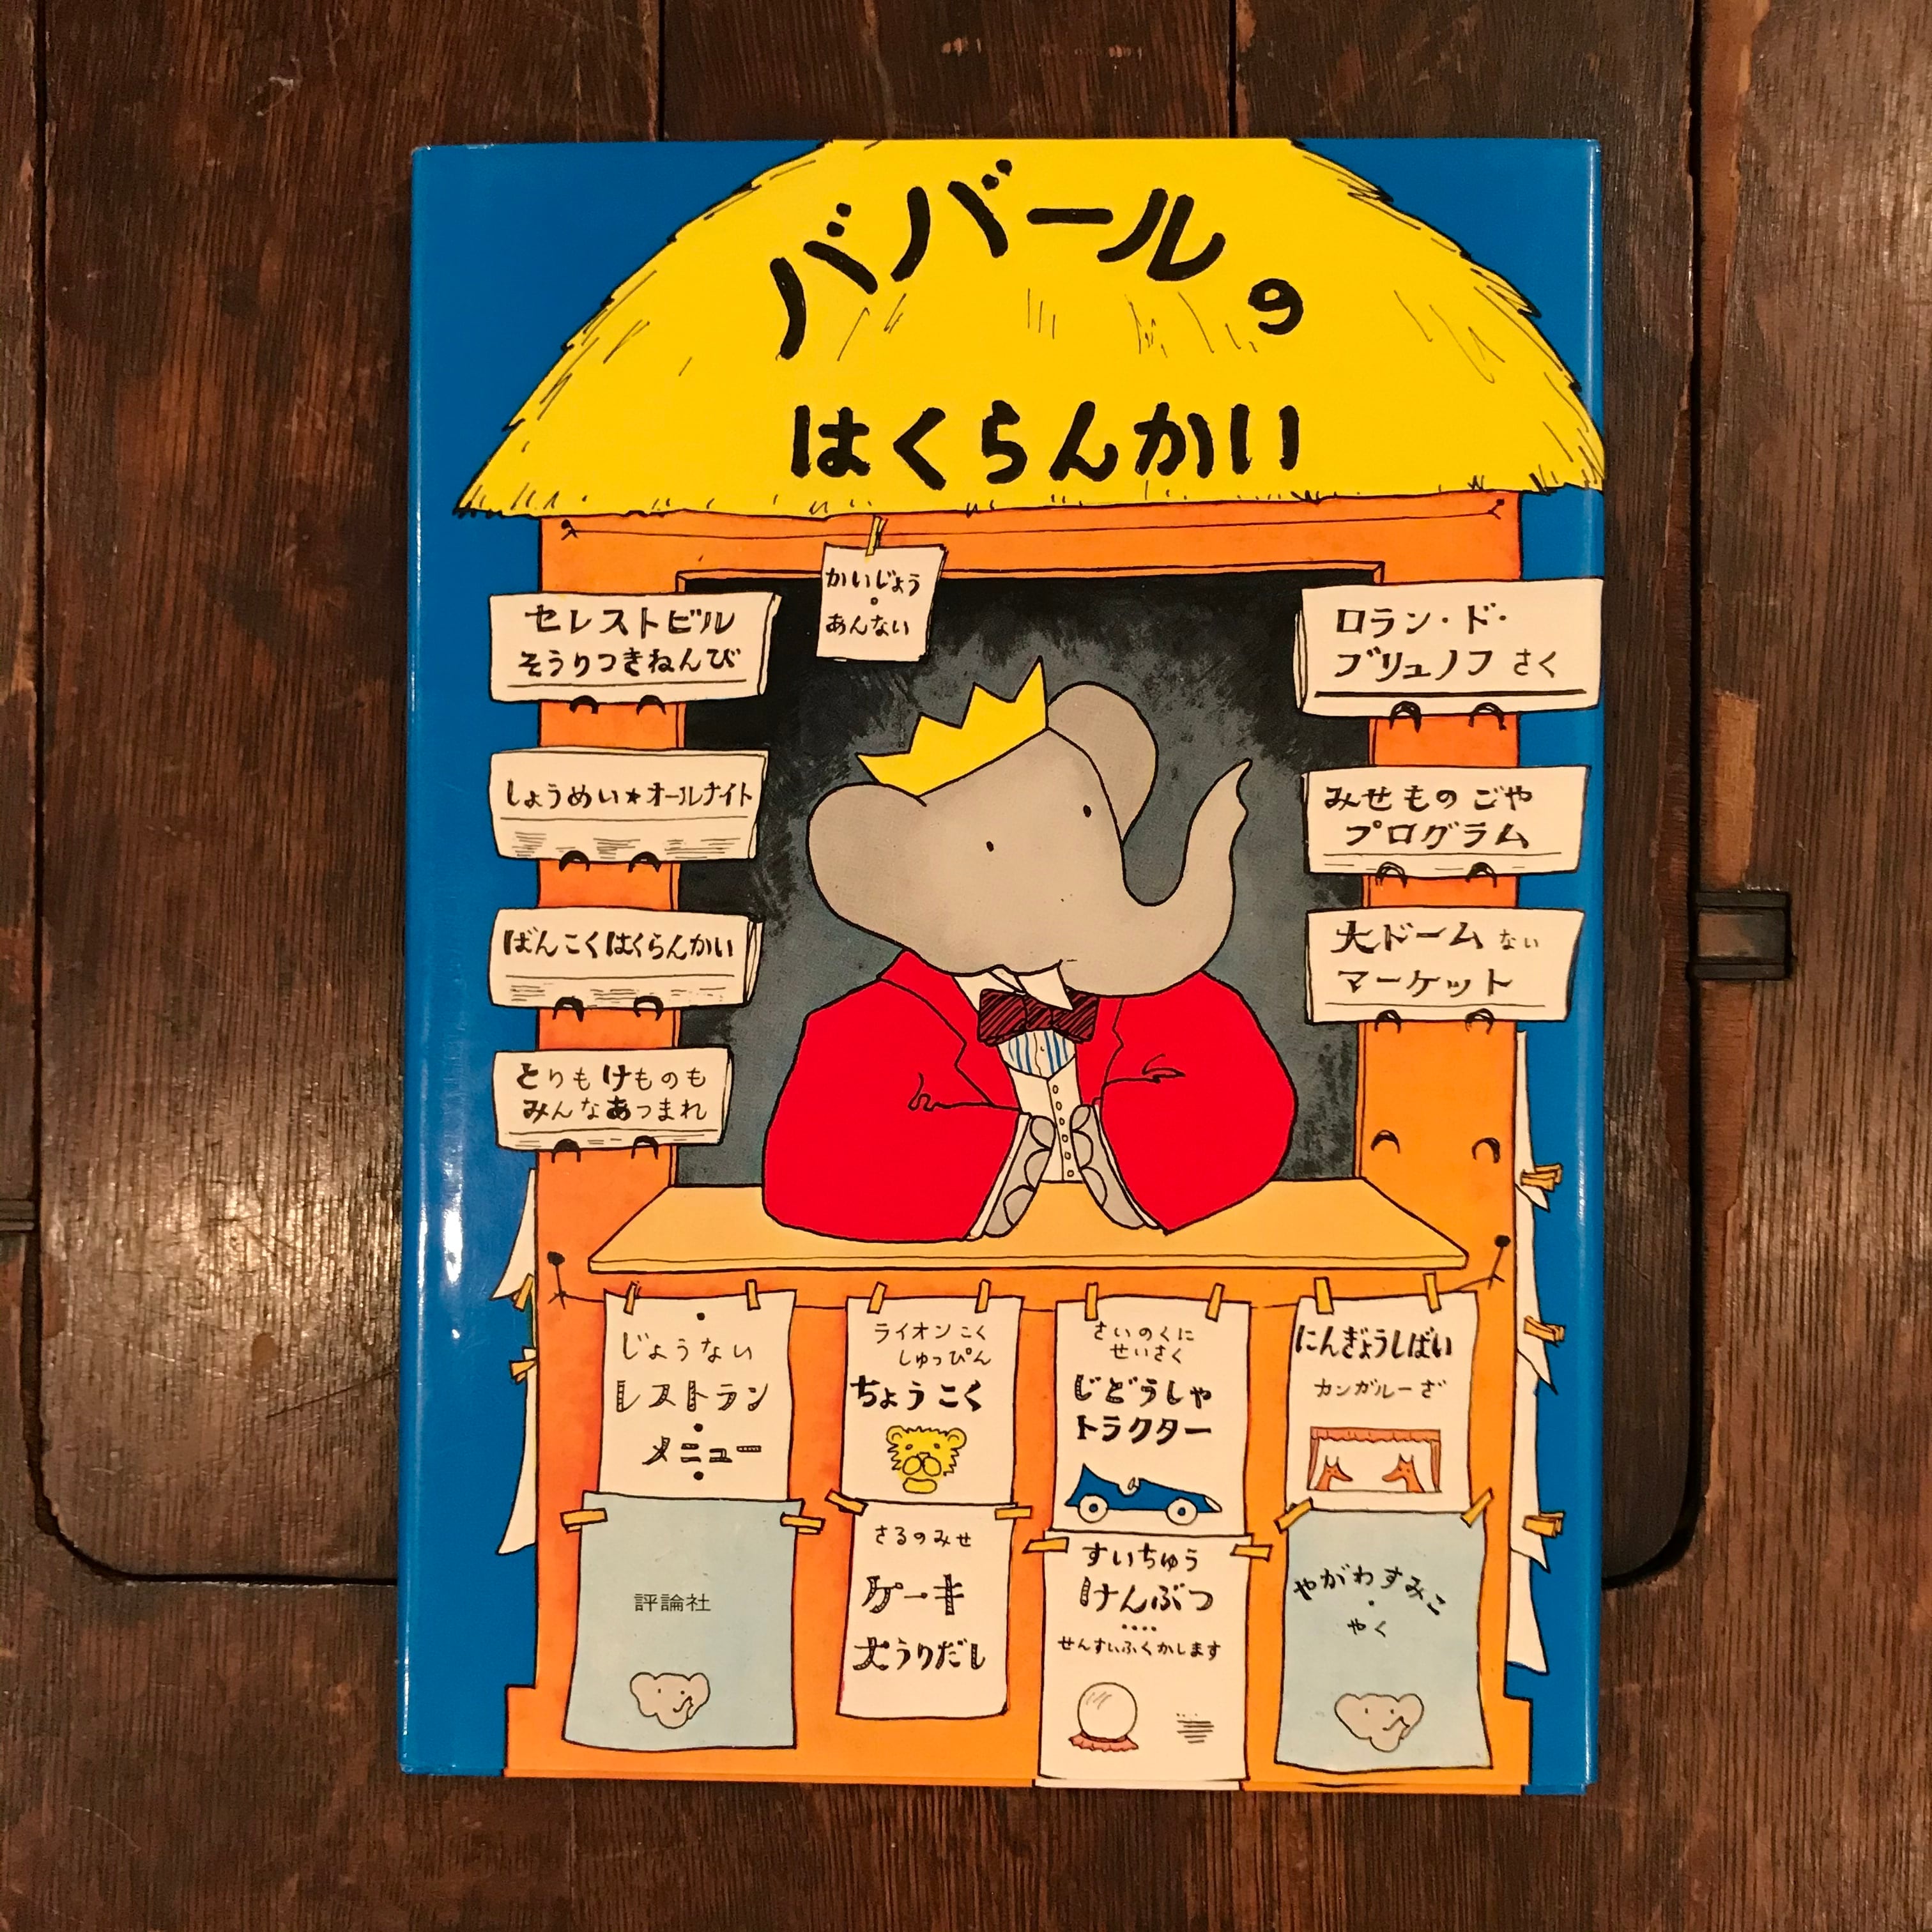 ババールの
はくらんかい
かいじょう
・
あんない
セレストビル
そうりつきねんび
しょうめい★オールナイト
ばんこくはくらんかい
とりもけものも
みんなあつまれ
ロラン・ド・
ブリュノフ さく
みせものごや
プログラム
大ドームない
マーケット
じょうない
レストラン
・
メニュー
・
評論社
ライオンこく
しゅっぴん
ちょうこく
さるのみせ
ケーキ
大うりだし
さいのくに
せいさく
じどうしゃ
トラクター
すいちゅう
けんぶつ
‥‥
せんすいふくかします
にんぎょうしばい
カンガルーざ
やがわすみこ
・
やく